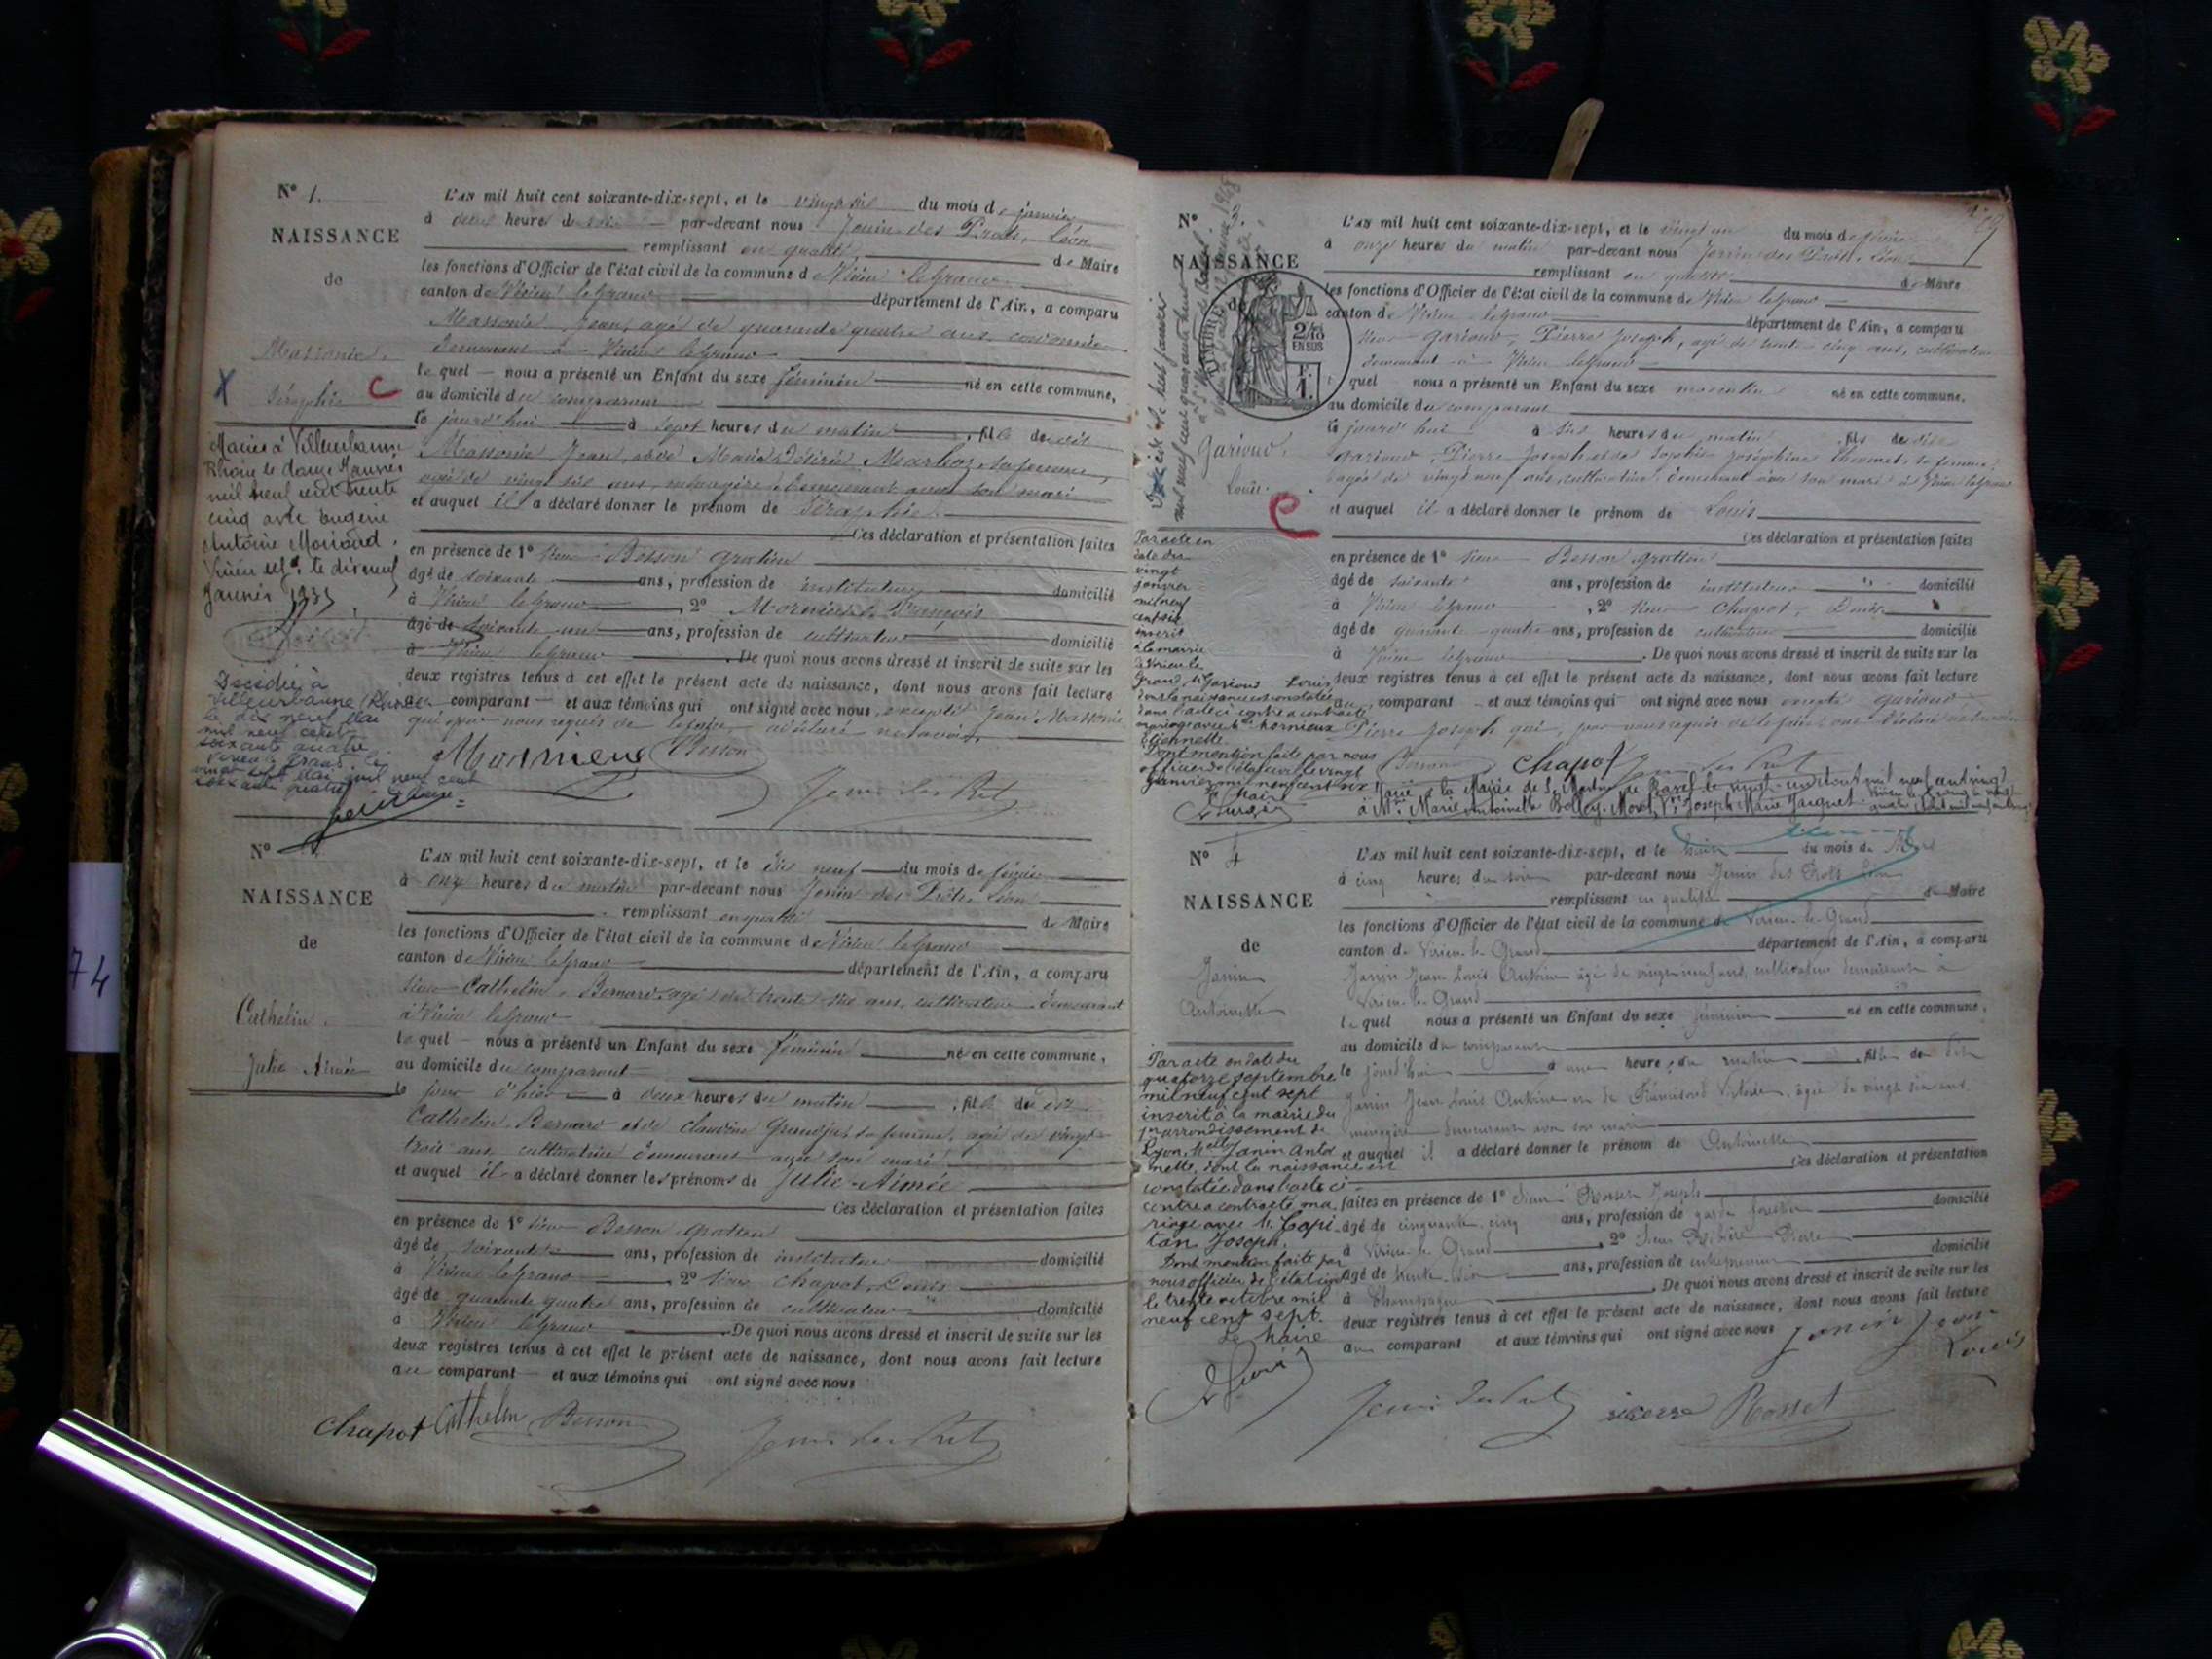 N° 1.
NAISSANCE
de
Massonié
Séraphie C
X
Mariée à Villeurbanne
Rhône le douze Janvier
mil neuf cent trente
cinq avec Eugène
Antoine Moriaud.
Virieu le gd. le dix neuf
Janvier 1935
Décédée à
Villeurbanne (Rhône)
le dix neuf Mai
mil neuf cent
soixante quatre.
Virieu le Grand, le
vingt sept Mai mil neuf cent
soixante quatre
L'AN mil huit cent soixante-dix-sept, et le vingt six du mois de janvier
à deux heures du soir par-devant nous Jenin des Prots, Léon
remplissant en qualité de Maire
les fonctions d'Officier de l'état civil de la commune de Virieu le grand
canton de Virieu le grand département de l'Ain, a comparu
Massonié Jean, agé de quarante quatre ans, cordonnier
demeurant à Virieu le grand
lequel nous a présenté un Enfant du sexe féminin né en cette commune,
au domicile du comparant
le jourd'hui à sept heures du matin, fille de dit
Massonié Jean, et de Marie Désirée Marhoz, sa femme,
agée de vingt six ans, ménagère demeurant avec son mari
et auquel il a déclaré donner le prénom de Séraphie.
Ces déclaration et présentation faites
en présence de 1° sieur Besson Gratien
âgé de soixante ans, profession de instituteur domicilié
à Virieu le grand, 2° Mornieux François
âgé de soixante un ans, profession de cultivateur domicilié
à Virieu le grand. De quoi nous avons dressé et inscrit de suite sur les
deux registres tenus à cet effet le présent acte de naissance, dont nous avons fait lecture
au comparant et aux témoins qui ont signé avec nous, excepté Jean Massonié
qui, pour nous requis de le faire, a déclaré ne savoir.
Mornieux Besson
Jenin des Prots
N°
NAISSANCE
de
Cathelin.
Julie Aimée
L'AN mil huit cent soixante-dix-sept, et le dix neuf du mois de février
à onze heures du matin par-devant nous Jenin des Prots, Léon
remplissant en qualité de Maire
les fonctions d'Officier de l'état civil de la commune de Virieu le grand
canton de Virieu le grand département de l'Ain, a comparu
sieur Cathelin, Bernard, agé de trente six ans, cultivateur demeurant
à Virieu le grand
lequel nous a présenté un Enfant du sexe féminin né en cette commune,
au domicile du comparant
le jour d'hier à deux heures du matin, fille de dit
Cathelin Bernard et de Claudine Grandjat sa femme, agée de vingt
trois ans, cultivatrice demeurant avec son mari
et auquel il a déclaré donner les prénoms de Julie Aimée
Ces déclaration et présentation faites
en présence de 1° sieur Besson Gratien
âgé de soixante ans, profession de instituteur domicilié
à Virieu le grand, 2° sieur Chapot, Denis
âgé de quarante quatre ans, profession de cultivateur domicilié
à Virieu le grand. De quoi nous avons dressé et inscrit de suite sur les
deux registres tenus à cet effet le présent acte de naissance, dont nous avons fait lecture
au comparant et aux témoins qui ont signé avec nous
Chapot Cathelin Besson
Jenin des Prots
74
N° 3.
NAISSANCE
de
TIMBRE
2/10
EN SUS
F.
1.
Garioud.
Louis. C
Par acte en
date du
vingt
janvier
mil neuf
cent six
inscrit
à la mairie
de Virieu le
Grand, M. Garioud Louis
dont la naissance est constatée
dans l'acte ci contre a contracté
mariage avec Mlle Mornieux
Etiennette.
Dont mention faite par nous
officier de l'état civil le vingt
janvier mil neuf cent six
Le Maire
L'AN mil huit cent soixante-dix-sept, et le vingt un du mois de février
à onze heures du matin par-devant nous Jenin des Prots, Léon
remplissant en qualité de Maire
les fonctions d'Officier de l'état civil de la commune de Virieu le grand
canton de Virieu le grand département de l'Ain, a comparu
sieur Garioud, Pierre Joseph, agé de trente cinq ans, cultivateur
demeurant à Virieu le grand
lequel nous a présenté un Enfant du sexe masculin né en cette commune,
au domicile du comparant
le jourd'hui à six heures du matin, fils de dit
Garioud, Pierre Joseph et de Sophie Joséphine Thomet, sa femme,
agée de vingt neuf ans, cultivatrice, demeurant avec son mari à Virieu le grand
et auquel il a déclaré donner le prénom de Louis
Ces déclaration et présentation faites
en présence de 1° sieur Besson Gratien
âgé de soixante ans, profession de instituteur domicilié
à Virieu le grand, 2° sieur Chapot, Denis
âgé de quarante quatre ans, profession de cultivateur domicilié
à Virieu le grand. De quoi nous avons dressé et inscrit de suite sur les
deux registres tenus à cet effet le présent acte de naissance, dont nous avons fait lecture
au comparant et aux témoins qui ont signé avec nous excepté Garioud
Pierre Joseph qui, pour nous requis de le faire, a déclaré ne savoir
Besson Chapot Jenin des Prots
Marié à la Mairie de St Martin de Bavel le vingt un août mil neuf cent vingt
à Mme Marie Antoinette Bolley-Morel, Vve Joseph Marie Jacquet
N° 4
NAISSANCE
de
Janin
Antoinette
Par acte en date du
quatorze septembre
mil neuf cent sept
inscrit à la mairie du
1er arrondissement de
Lyon, Melle Janin Antoi
nette, dont la naissance est
constatée dans l'acte ci-
contre a contracté ma
riage avec M. Capi
tan Joseph.
Dont mention faite par
nous officier de l'état civil
le trente octobre mil
neuf cent sept.
Le Maire
L'AN mil huit cent soixante-dix-sept, et le trois du mois de Mars
à cinq heures du soir par-devant nous Jenin des Prots Léon
remplissant en qualité de Maire
les fonctions d'Officier de l'état civil de la commune de Virieu-le-Grand
canton de Virieu-le-Grand département de l'Ain, a comparu
Janin Jean Louis Antoine âgé de vingt neuf ans, cultivateur demeurant à
Virieu-le-Grand
lequel nous a présenté un Enfant du sexe féminin né en cette commune,
au domicile du comparant
le jourd'hui à une heure du matin, fille de dit
Janin Jean Louis Antoine et de Victoire, âgée de vingt six ans,
ménagère demeurant avec son mari
et auquel il a déclaré donner le prénom de Antoinette
Ces déclaration et présentation
faites en présence de 1° sieur Rosset Joseph
âgé de cinquante cinq ans, profession de garde forestier domicilié
à Virieu-le-Grand, 2° sieur Pierre
âgé de trente ans, profession de entrepreneur domicilié
à Champagne. De quoi nous avons dressé et inscrit de suite sur les
deux registres tenus à cet effet le présent acte de naissance, dont nous avons fait lecture
au comparant et aux témoins qui ont signé avec nous Janin Jean
Louis
Jenin des Prots Rosset